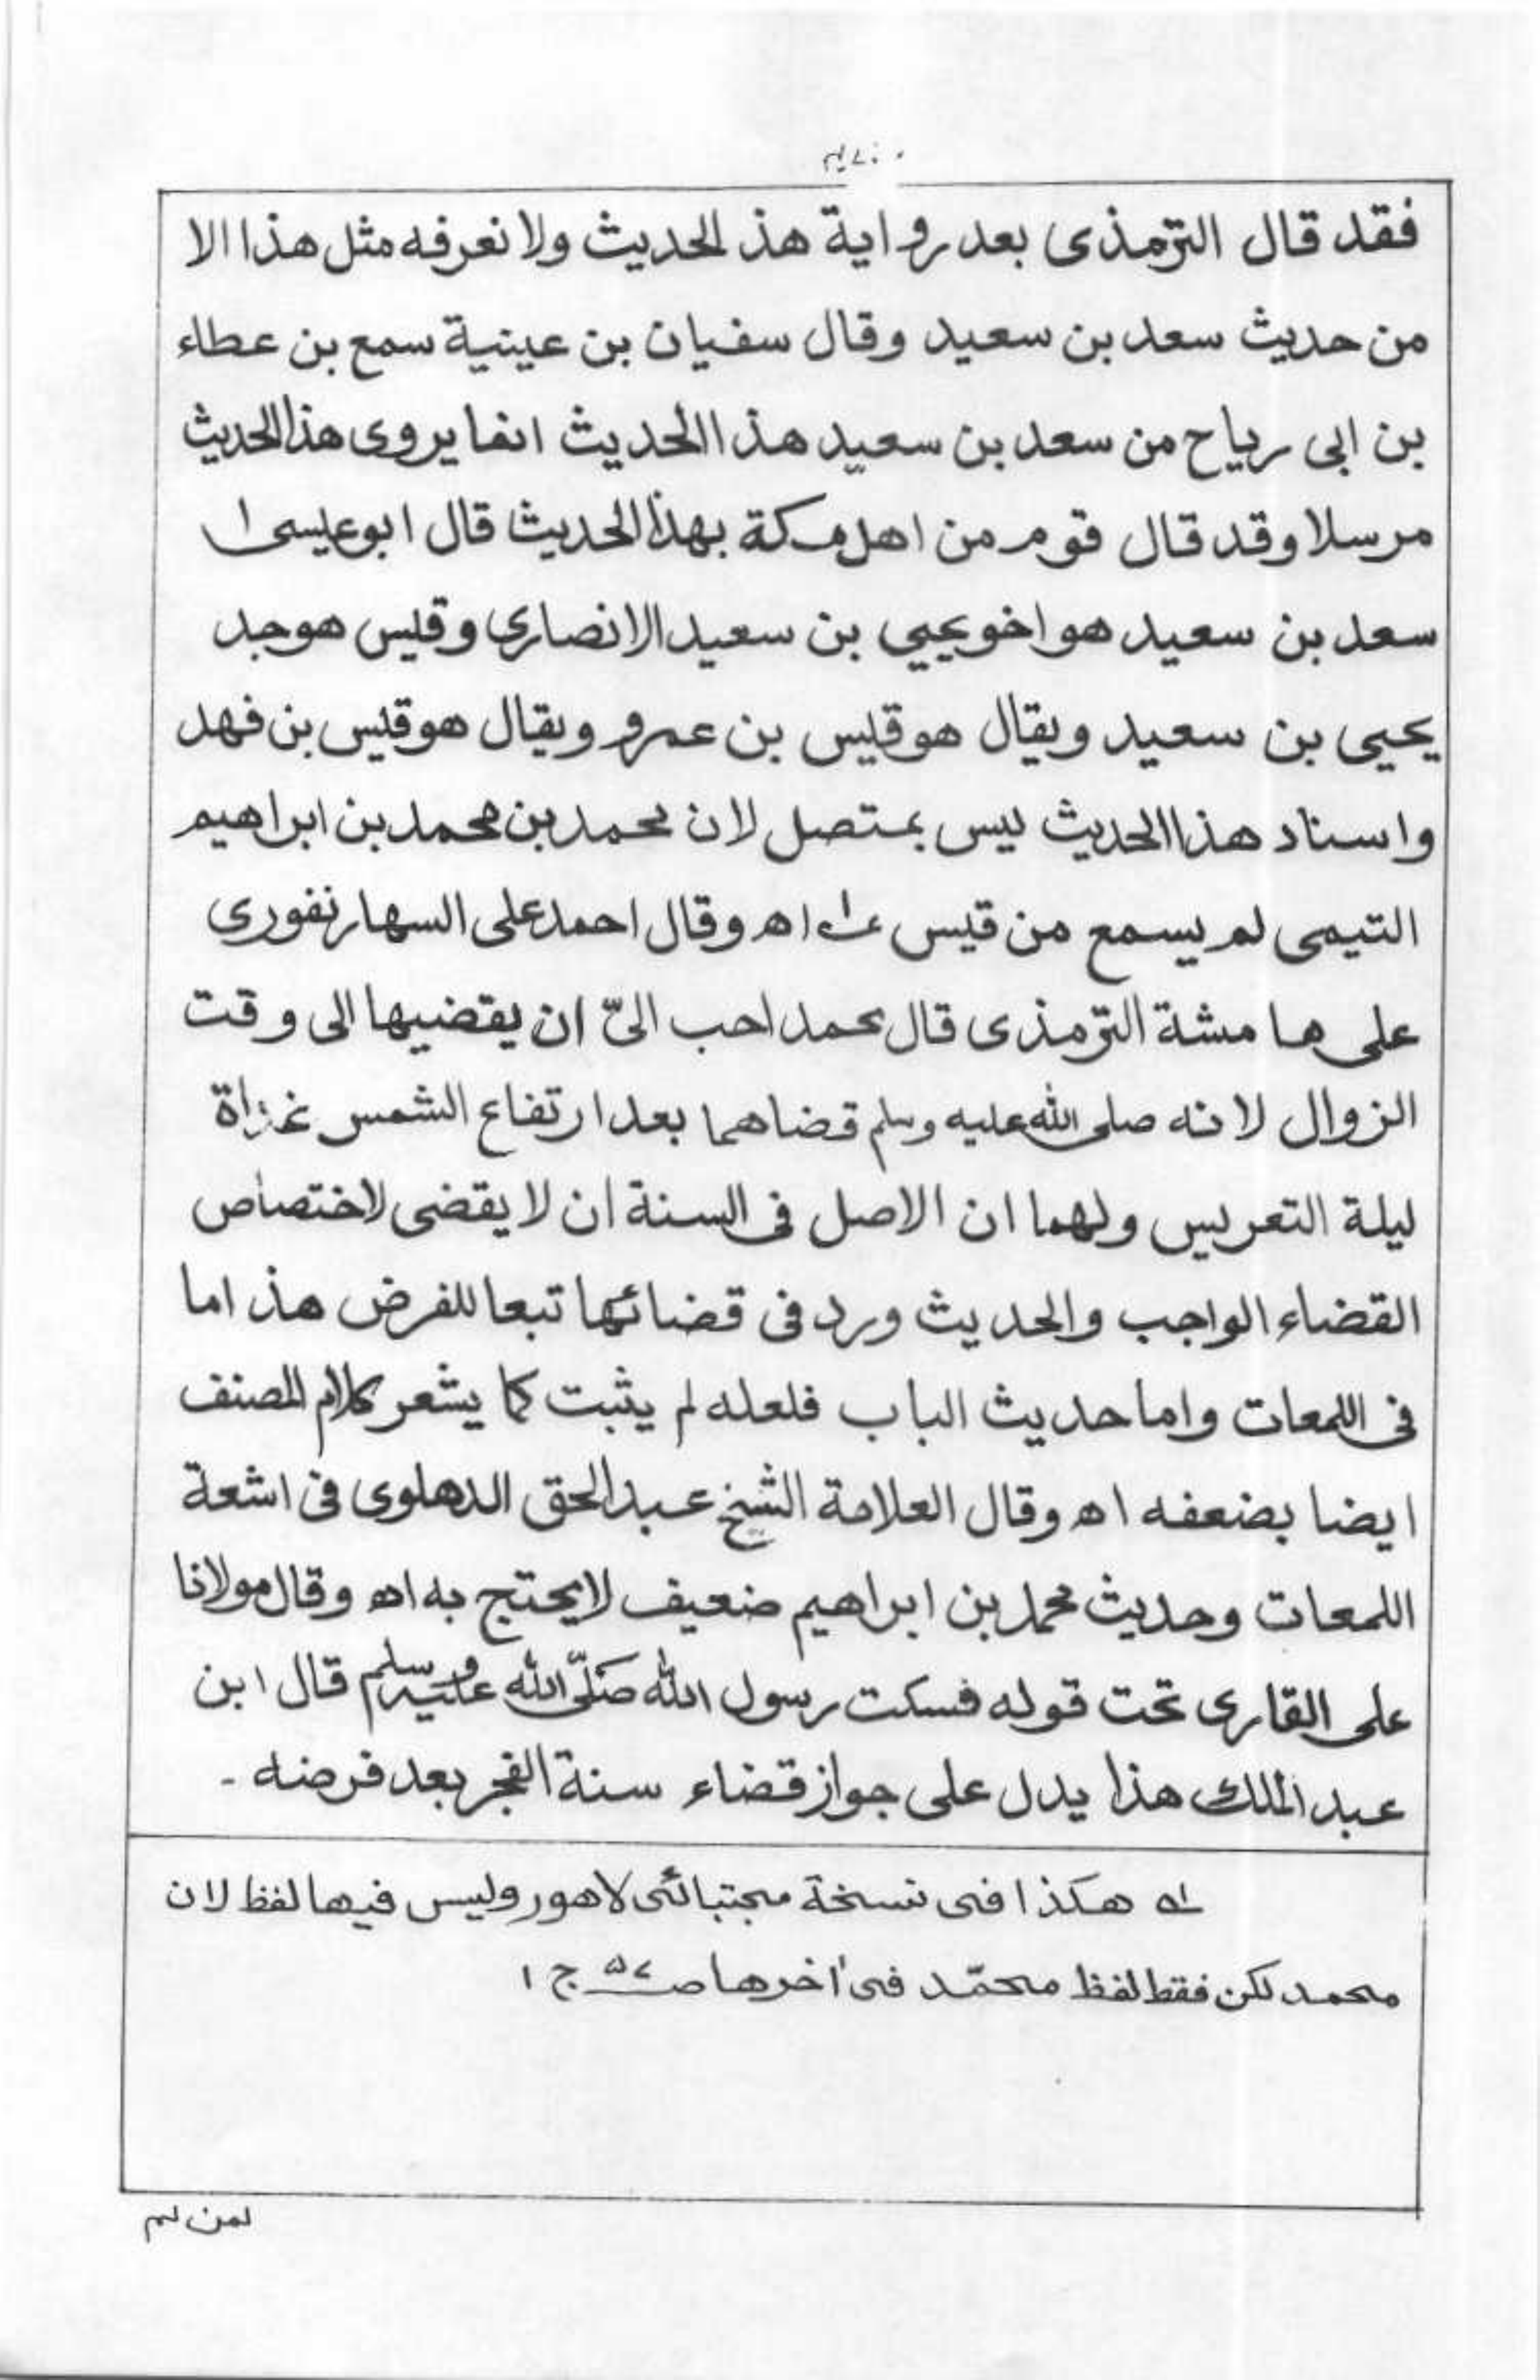 فقد قال الترمذى بعد رواية هذ الحديث ولا نعرفه مثل هذا الا
من حديث سعد بن سعيد وقال سفيان بن عينية سمع بن عطاء
بن ابى رياح من سعد بن سعيد هذا الحديث انما يروى هذا الحديث
مرسلا وقد قال قوم من اهل مكة بهذا الحديث قال ابو عيسى ا
سعد بن سعيد هو اخو يحيي بن سعيد الانصارى وقيس هو جد
يحيى بن سعيد ويقال هو قيس بن عمرو ويقال هو قيس بن فهد
واسناد هذا الحديث ليس بمتصل لان محمد بن محمد بن ابراهيم
التيمى لم يسمع من قيس اھ وقال احمد على السهارنفورى
على هامشة الترمذى قال محمد احب الىّ ان يقضيها الى وقت
الزوال لانه صلى الله عليه وسلم قضاهما بعد ارتفاع الشمس غداة
ليلة التعريس ولهما ان الاصل فى السنة ان لا يقضى لاختصاص
القضاء الواجب والحديث ورد فى قضائها تبعا للفرض هذ اما
فى اللمعات واما حديث الباب فلعله لم يثبت كما يشعر كلام المصنف
ايضا بضعفه اھ وقال العلامة الشيخ عبد الحق الدهلوى فى اشعة
اللمعات وحديث محمد بن ابراهيم ضعيف لا يحتج به اھ وقال مولانا
على القارى تحت قوله فسكت رسول الله صَلّى الله عليه وسلم قال ابن
عبد الملك هذا يدل على جواز قضاء سنة الفجر بعد فرضه -
له هكذا فى نسخة مجتبائى لاهور وليس فيها لفظ لان
محمد لكن فقط لفظ محمّد فى اخرها صـ ٥٧ ج ١
لمن لم